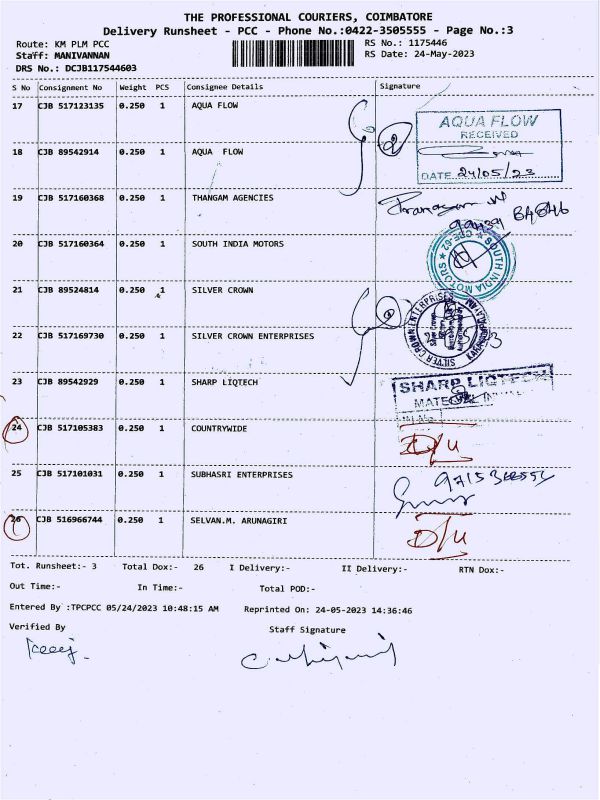 THE PROFESSIONAL COURIERS, COIMBATORE
Delivery Runsheet - PCC - Phone No.:0422-3505555 - Page No.:3
Route: KM PLM PCC RS No.: 1175446
Staff: MANIVANNAN RS Date: 24-May-2023
DRS No.: DCJB117544603
S No Consignment No Weight PCS Consignee Details Signature
17 CJB 517123135 0.250 1 AQUA FLOW
AQUA FLOW
RECEIVED
DATE 24/05/23
18 CJB 89542914 0.250 1 AQUA FLOW
19 CJB 517160368 0.250 1 THANGAM AGENCIES
20 CJB 517160364 0.250 1 SOUTH INDIA MOTORS
SOUTH INDIA MOTORS ★ CBE-62 ★
21 CJB 89524814 0.250 1 SILVER CROWN
22 CJB 517169730 0.250 1 SILVER CROWN ENTERPRISES
SILVER CROWN ENTERPRISES
23 CJB 89542929 0.250 1 SHARP LIQTECH
SHARP LIQTECH
24 CJB 517105383 0.250 1 COUNTRYWIDE
D/U
25 CJB 517101031 0.250 1 SUBHASRI ENTERPRISES
26 CJB 516966744 0.250 1 SELVAN.M. ARUNAGIRI
D/U
Tot. Runsheet:- 3 Total Dox:- 26 I Delivery:- II Delivery:- RTN Dox:-
Out Time:- In Time:- Total POD:-
Entered By :TPCPCC 05/24/2023 10:48:15 AM Reprinted On: 24-05-2023 14:36:46
Verified By Staff Signature